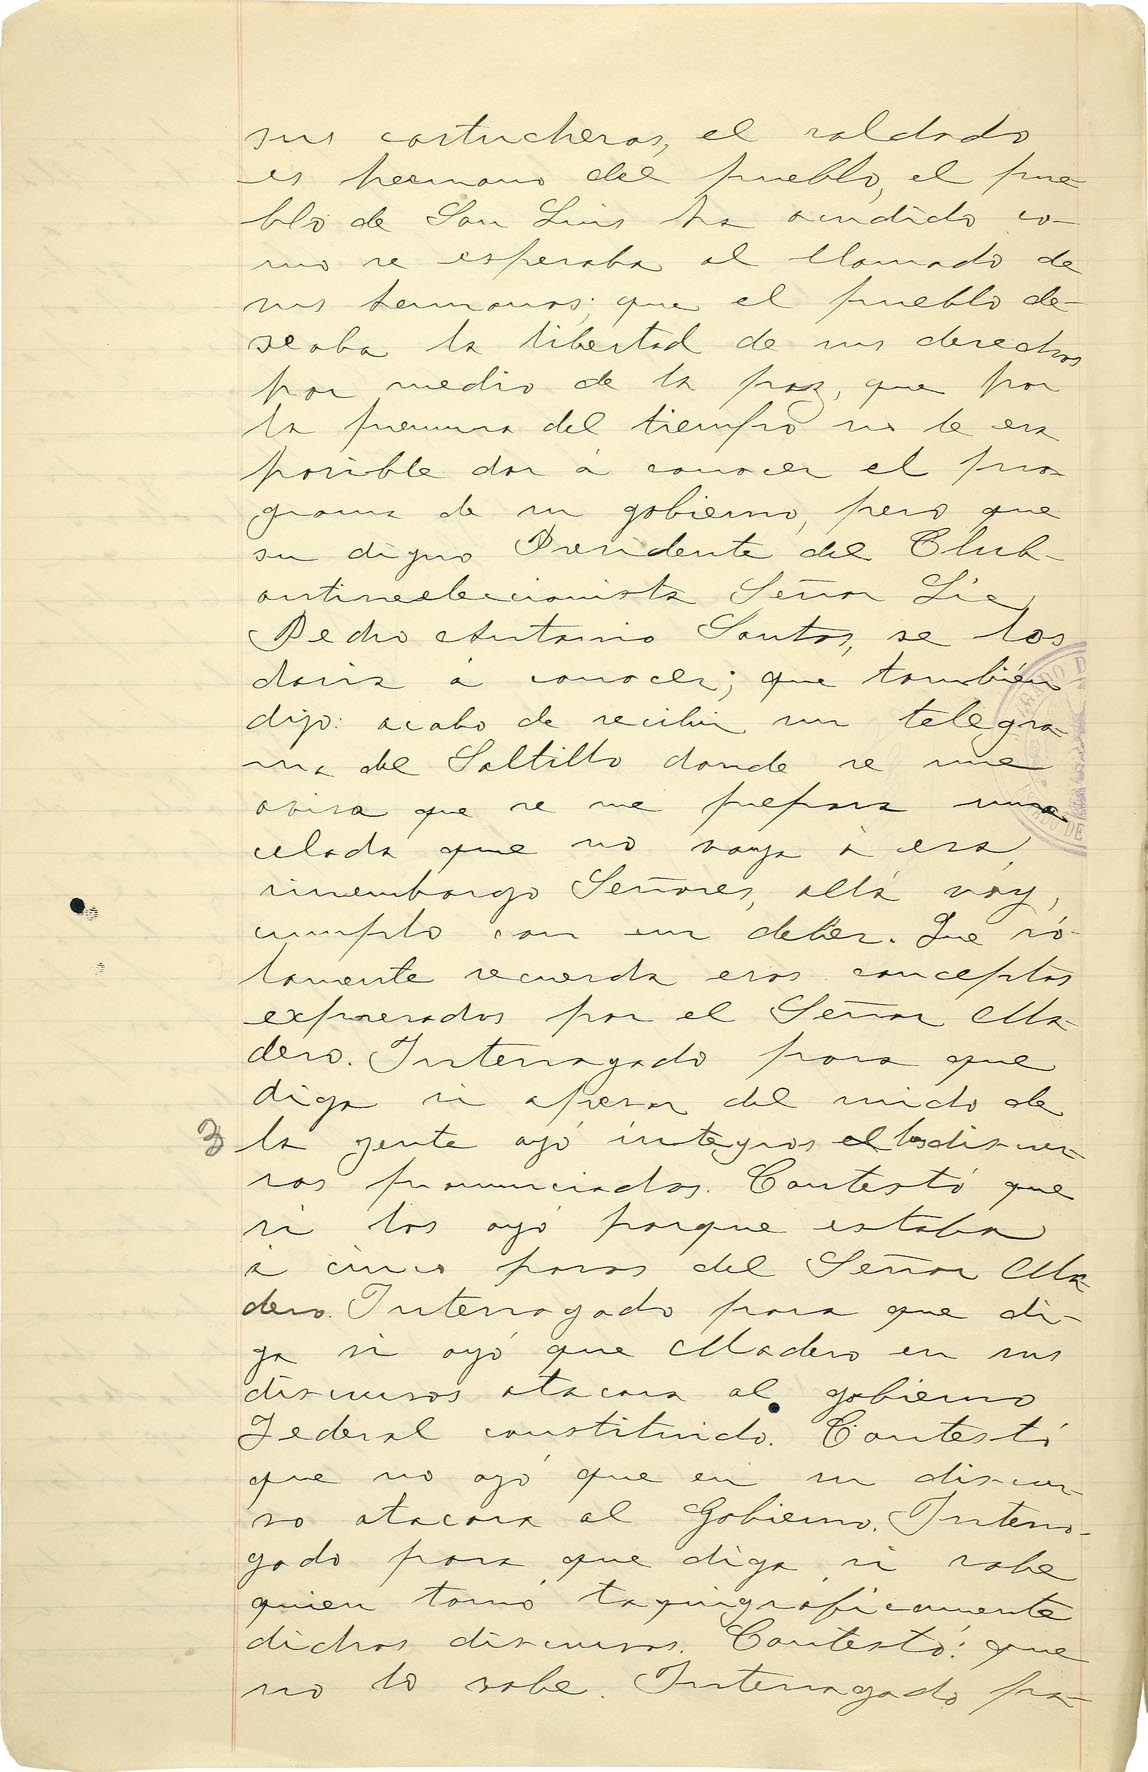 sus cartucheras, el soldado
es hermano del pueblo, el pue-
blo de San Luis ha acudido co-
mo se esperaba al llamado de
sus hermanos; que el pueblo de-
seaba la libertad de sus derechos
por medio de la paz, que por
la premura del tiempo no le era
posible dar á conocer el pro-
grama de su gobierno, pero que
su digno Presidente del Club-
antireeleccionista Señor Lic.
Pedro Antonio Santos, se los
daria á conocer; que también
dijo: acabo de recibir un telegra-
ma del Saltillo donde se me
avisa que se me prepara una
celada que no vaya á esa,
sinembargo Señores, allá voy,
cumplo con un deber. Que só-
lamente recuerda esos conceptos
expresados por el Señor Ma-
dero. Interrogado para que
diga si apesar del ruido de
3 la gente oyó integros el los discur-
sos pronunciados. Contestó que
si los oyó porque estaba
á cinco pasos del Señor Ma-
dero. Interrogado para que di-
ga si oyó que Madero en sus
discursos atacara al gobierno
Federal constituido. Contestó
que no oyó que en su discur-
so atacara al Gobierno. Interro-
gado para que diga si sabe
quien tomó taquigraficamente
dichos discursos. Contestó: que
no lo sabe. Interrogado pa-